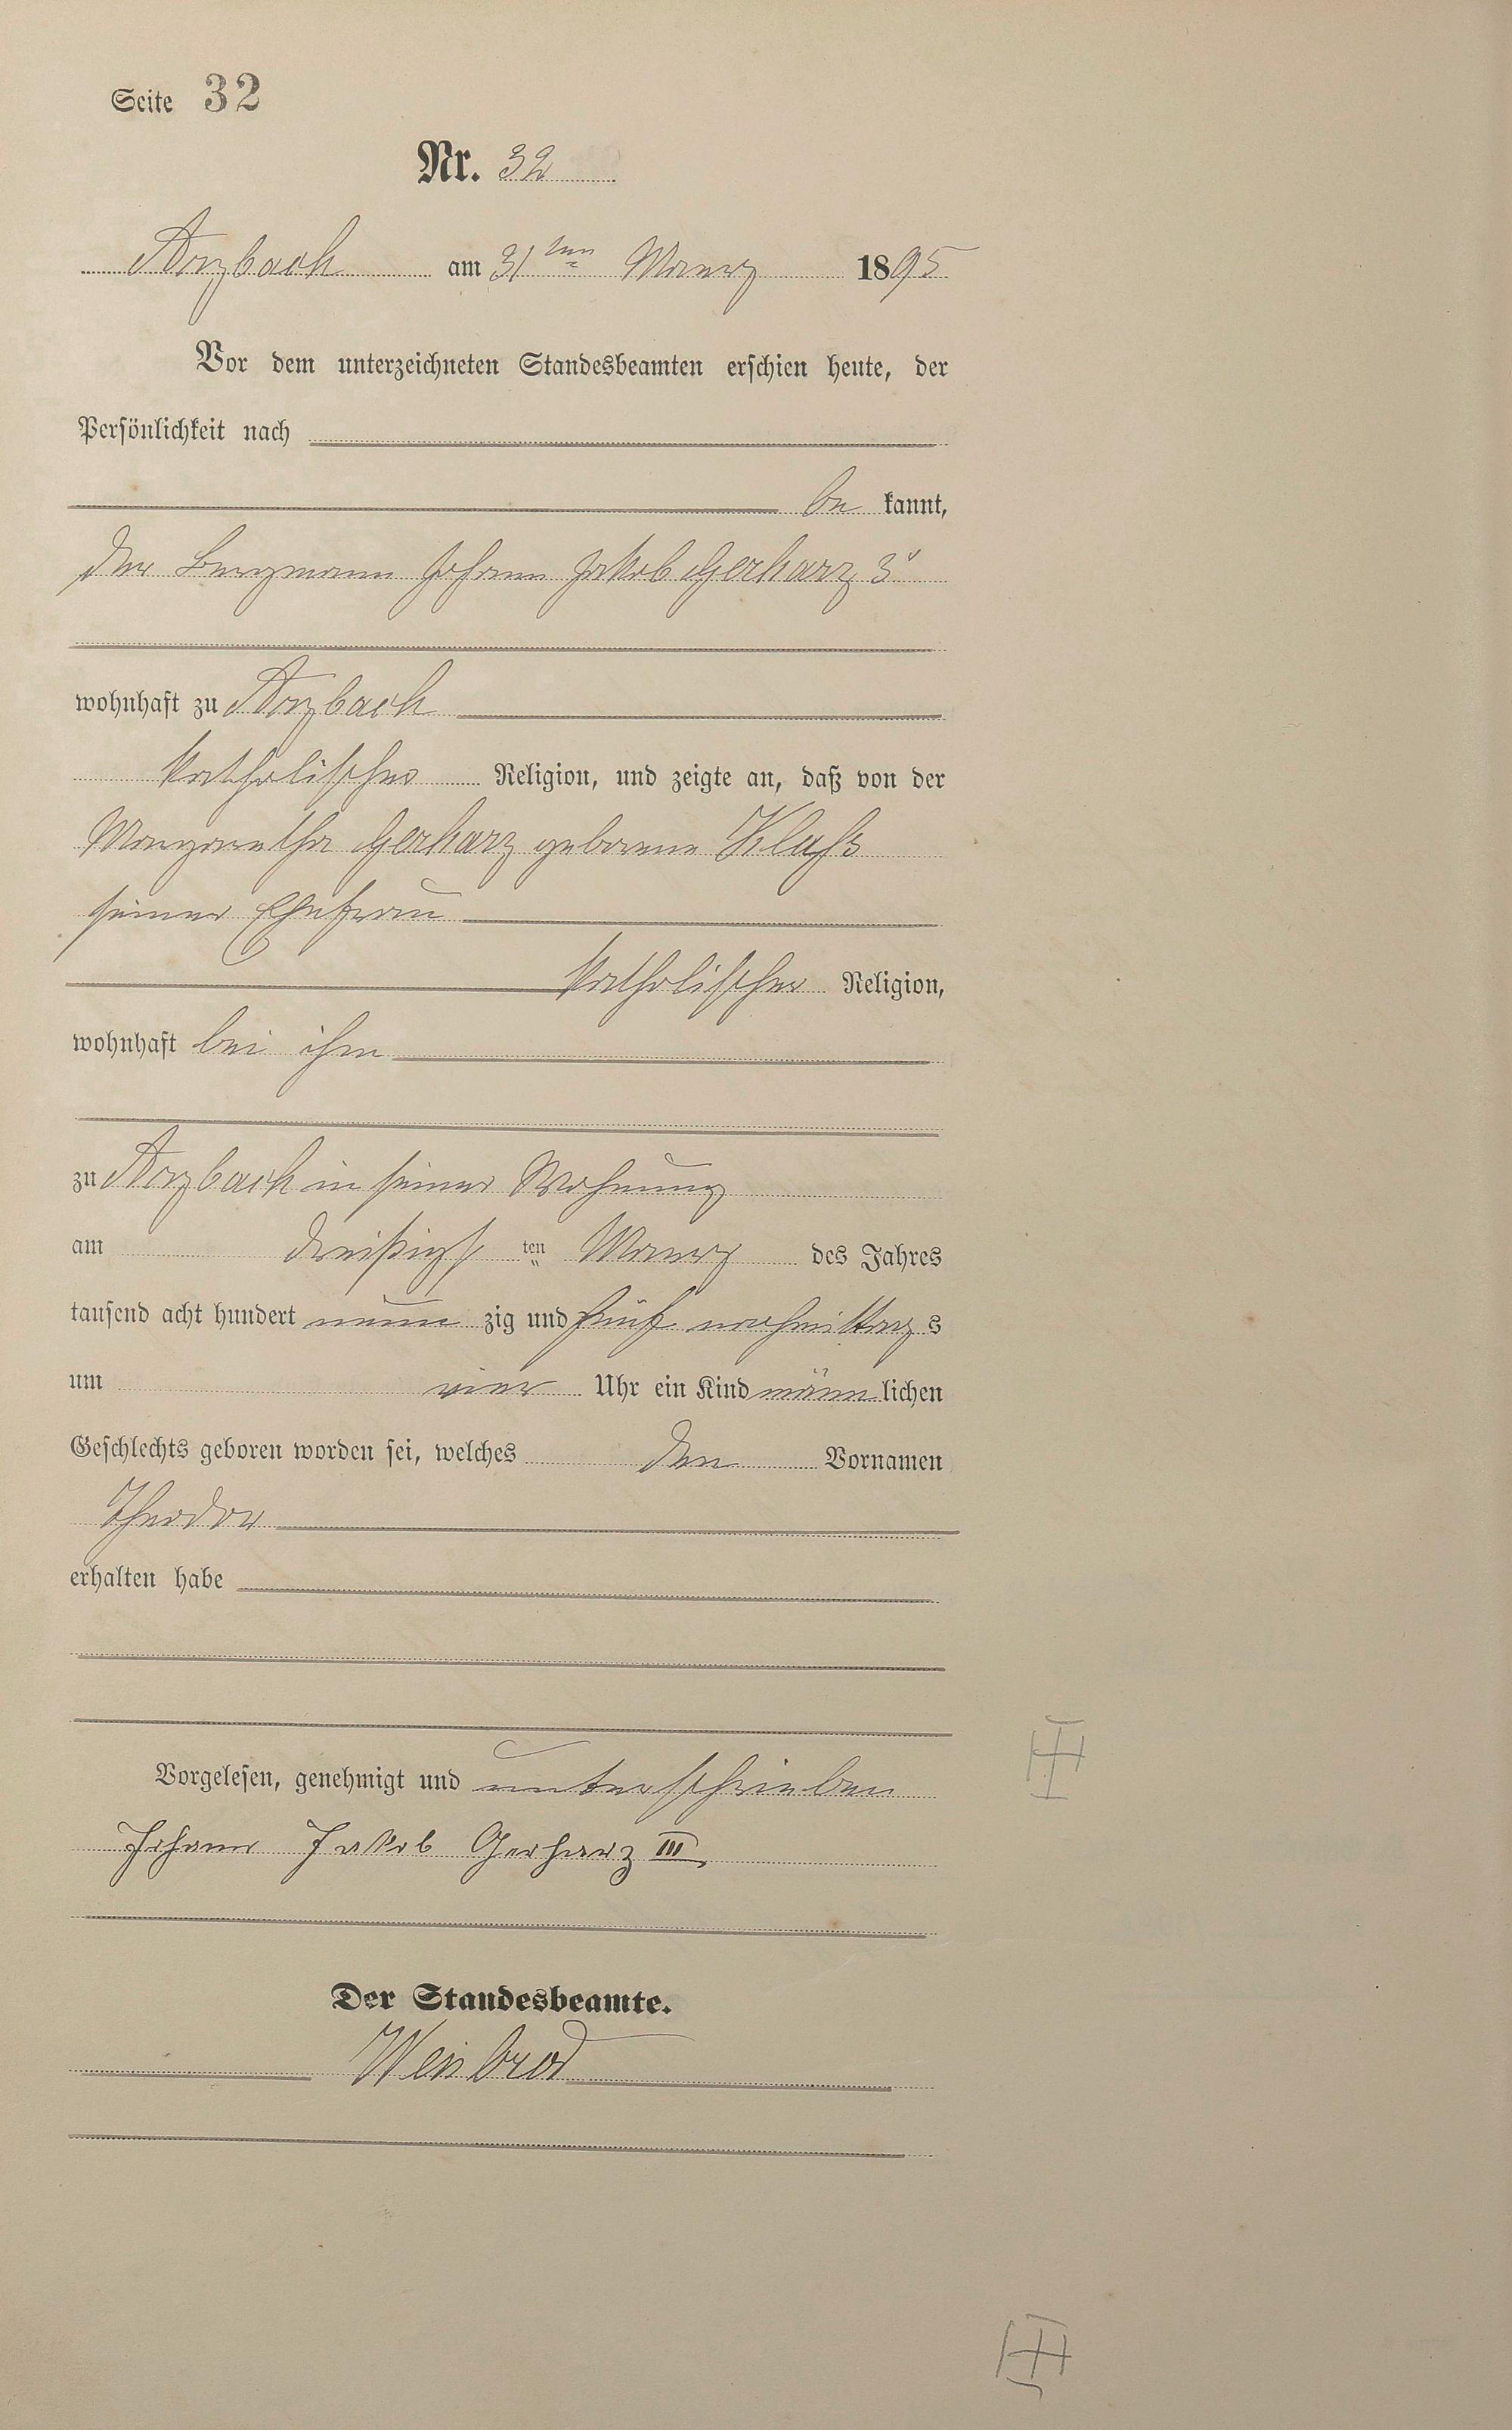 Seite 32
Nr. 32
Arzbach am 31ten Maerz 1895
Vor dem unterzeichneten Standesbeamten erschien heute, der
Persönlichkeit nach
be kannt,
der Bergmann Johann Jakob Gerharz 3r
wohnhaft zu Arzbach
katholischer Religion, und zeigte an, daß von der
Margaretha Gerharz geborene Klaß
seiner Ehefrau
katholischer Religion,
wohnhaft bei ihm
zu Arzbach in seiner Wohnung
am dreißigs ten Maerz des Jahres
tausend acht hundert neun zig und fünf nachmittags
um vier Uhr ein Kind männ lichen
Geschlechts geboren worden sei, welches den Vornamen
Theodor
erhalten habe
Vorgelesen, genehmigt und unterschrieben
Johann Jakob Gerharz III
Der Standesbeamte.
Weinbrod